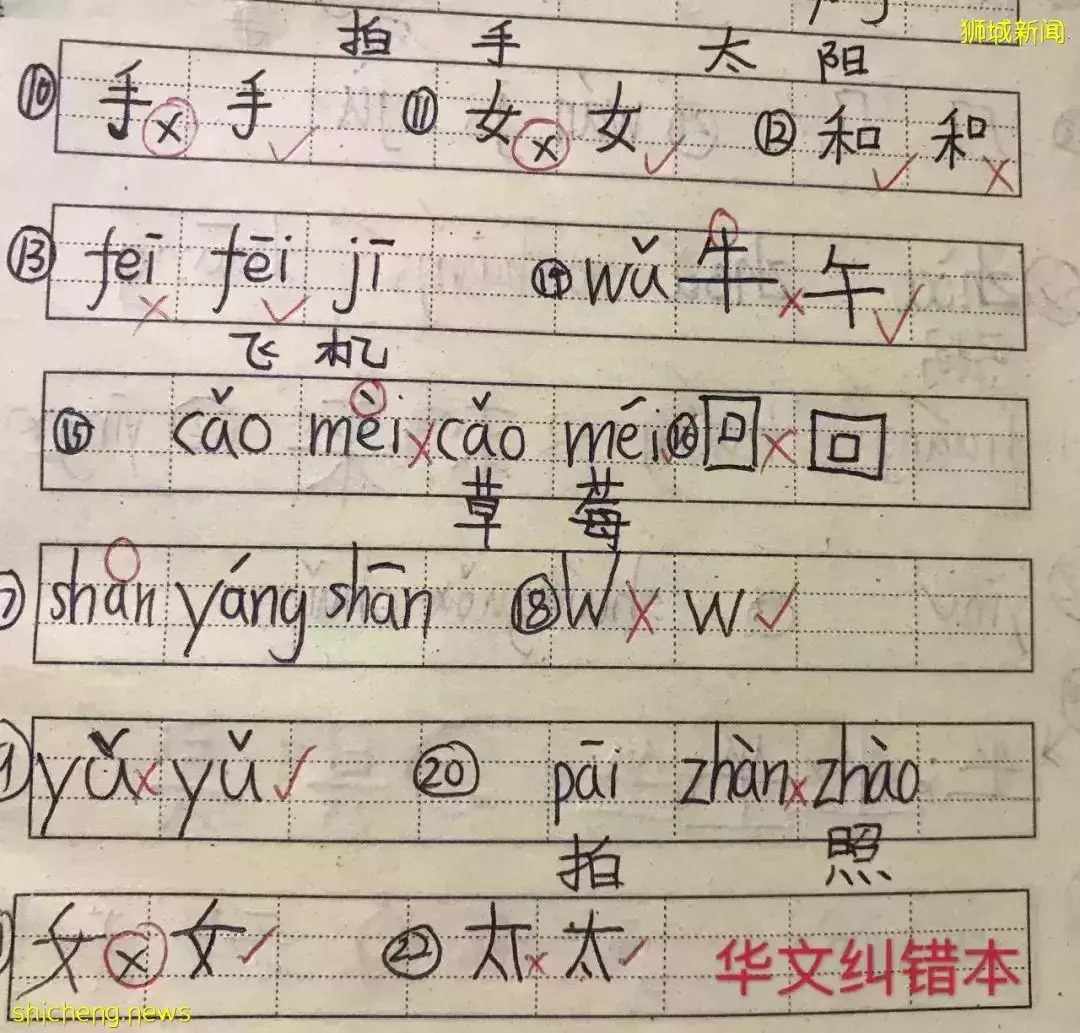 狮城新闻
拍 手 太 阳
⑩ 手 × 手 ✓ ⑪ 女 × 女 ✓ ⑫ 和 ✓ 和 ×
⑬ feī × fēi ✓ jī ⑭ wǔ 牛 × 午 ✓
飞 机
⑮ cǎo mèi × cǎo méi ⑯ 回 × 回
草 莓
shan yáng shān ⑱ W × w ✓
yǔ × yǔ ✓ ⑳ pāi zhàn × zhào
拍 照
女 × 女 ✓ ㉒ 太 × 太 ✓
华文纠错本
shicheng.news